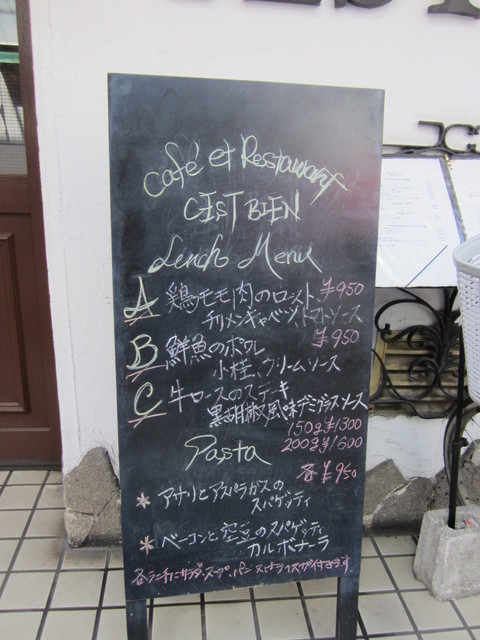 Café et Restaurant
C'EST BIEN
Lunch Menu
A 鶏モモ肉のロースト ¥950
チリメンキャベツ、トマトソース
B 鮮魚のポワレ ¥950
小柱、クリームソース
C 牛ロースのステーキ
黒胡椒風味デミグラスソース
150g ¥1300
200g ¥1600
Pasta 各¥950
* アサリとアスパラガスの
スパゲッティ
* ベーコンと空豆のスパゲッティ
カルボナーラ
各ランチにサラダ、スープ、パン又はライスが付きます